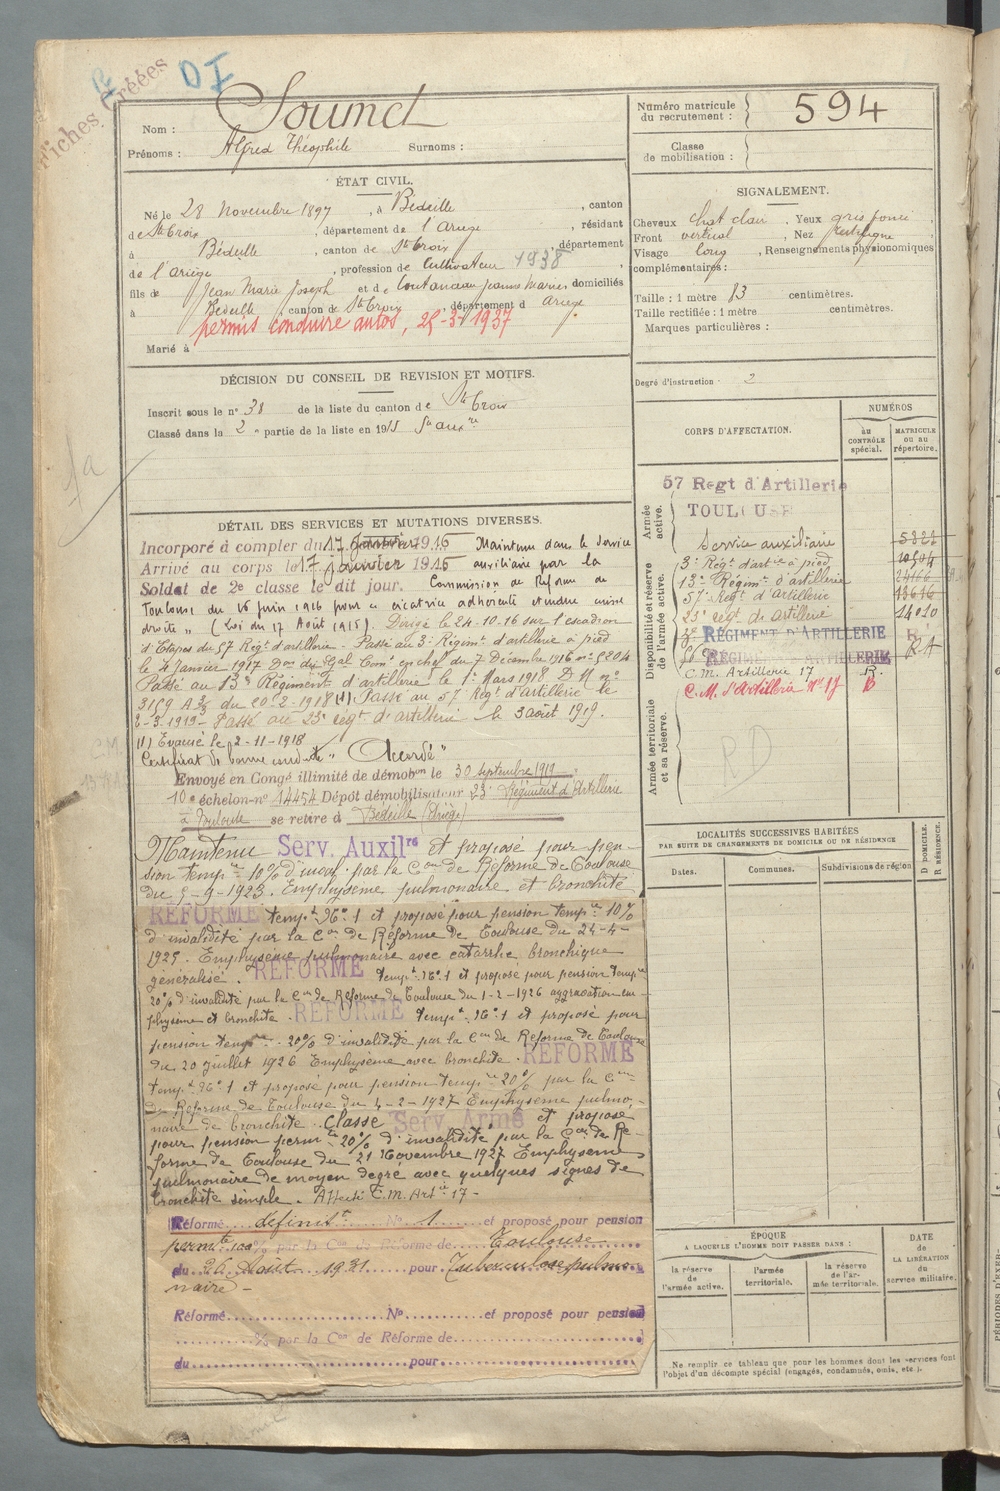 Fiches créées
DI
Nom : Soumet
Prénoms : Alfred Théophile Surnoms :
ÉTAT CIVIL.
Né le 28 Novembre 1897, à Bédeille, canton
de Ste Croix, département de l'Ariège, résidant
à Bédeille, canton de Ste Croix, département
de l'Ariège, profession de Cultivateur 1938
fils de Jean Marie Joseph et de Coutanceau Jeanne Marie domiciliés
à Bédeille, canton de Ste Croix, département d Ariège
permis conduire autos, 25-3-1937
Marié à
DÉCISION DU CONSEIL DE REVISION ET MOTIFS.
Inscrit sous le n° 38 de la liste du canton de Ste Croix
Classé dans la 2e partie de la liste en 1915 Sce auxre
DÉTAIL DES SERVICES ET MUTATIONS DIVERSES.
Incorporé à compter du 17 Janvier 1916 Maintenu dans le service
Arrivé au corps le 17 janvier 1916 auxiliaire par la
Soldat de 2e classe le dit jour. Commission de Réforme de
Toulouse du 16 juin 1916 pour « cicatrice adhérente étendue cuisse
droite » (Loi du 17 Août 1915). Dirigé le 24.10.16 sur l'escadron
d'Etapes du 57 Régt d'artillerie. Passé au 3e Régimt d'artillerie à pied
le 4 Janvier 1917 Don du Gal Comt en chef du 7 Décembre 1916 n° 5204
Passé au 13e Régiment d'artillerie le 1er Mars 1918 D.M. n°
3159 A 3/3 du 20-2-1918 (1) Passé au 57e Régt d'artillerie le
2-3.1919- Passé au 23e régt d'artillerie le 3 août 1919.
(1) Evacué le 2-11-1918
Certificat de bonne conduite « Accordé »
Envoyé en Congé illimité de démobon le 30 septembre 1919
10e échelon-n° 14454 Dépôt démobilisateur 23e Régiment d'Artillerie
à Toulouse se retire à Bédeille (Ariège)
Maintenu Serv. Auxilre et proposé pour pen-
sion tempre 10% d'inval. par la Con de Réforme de Toulouse
du 5-9-1923. Emphysème pulmonaire et bronchite
RÉFORMÉ tempt N° 1 et proposé pour pension tempre 10%
d'invalidité par la Con de Réforme de Toulouse du 24-4-
1925. Emphysème pulmonaire avec catarrhe bronchique
généralisé. RÉFORMÉ tempt N° 1 et proposé pour pension tempre
20% d'invalidité par la Con de Réforme de Toulouse du 1-2-1926 aggravation em-
physème et bronchite. RÉFORMÉ tempt N° 1 et proposé pour
pension tempre 20% d'invalidité par la Con de Réforme de Toulouse
du 20 juillet 1926 Emphysème avec bronchite. RÉFORMÉ
tempt N° 1 et proposé pour pension tempre 20% par la Con
de Réforme de Toulouse du 4-2-1927 Emphysème pulmo-
naire de bronchite. Classé Serv. Armé et proposé
pour pension permte 20% d'invalidité par la Con de Ré-
forme de Toulouse du 21 Novembre 1927 Emphysème
pulmonaire de moyen degré avec quelques signes de
bronchite simple. Affecté C.M. Artie 17-
Réformé définitt N° 1 et proposé pour pension
permte 100% par la Con de Réforme de Toulouse
du 26 Août 1931 pour Tuberculose pulmo-
naire-
Réformé N° et proposé pour pension
% par la Con de Réforme de
du pour
Numéro matricule du recrutement : 594
Classe de mobilisation :
SIGNALEMENT.
Cheveux chat clair, Yeux gris foncé,
Front vertical, Nez rectiligne,
Visage long, Renseignements physionomiques
complémentaires :
Taille : 1 mètre 83 centimètres.
Taille rectifiée : 1 mètre centimètres.
Marques particulières :
Degré d'instruction : 2
CORPS D'AFFECTATION.
NUMÉROS
au CONTRÔLE spécial.
MATRICULE ou au répertoire.
Armée active.
57 Regt d'Artillerie
TOULOUSE
Service auxiliaire 5322
Disponibilité et réserve de l'armée active.
3e Régt d'artie à pied 10504
13e Régimt d'artillerie
57e Régt d'artillerie 13616
23e régt de artillerie 14010
RÉGIMENT D'ARTILLERIE
RÉGIMENT D'ARTILLERIE RA
C.M. Artillerie 17 R.
C.M. d'Artillerie N° 17 B
Armée territoriale et sa réserve.
RD
LOCALITÉS SUCCESSIVES HABITÉES
PAR SUITE DE CHANGEMENTS DE DOMICILE OU DE RÉSIDENCE
Dates.
Communes.
Subdivisions de région
D DOMICILE.
R RÉSIDENCE.
ÉPOQUE
A LAQUELLE L'HOMME DOIT PASSER DANS :
la réserve de l'armée active.
l'armée territoriale.
la réserve de l'armée territoriale.
DATE de LA LIBÉRATION du service militaire.
Ne remplir ce tableau que pour les hommes dont les services font
l'objet d'un décompte spécial (engagés, condamnés, omis, etc.).